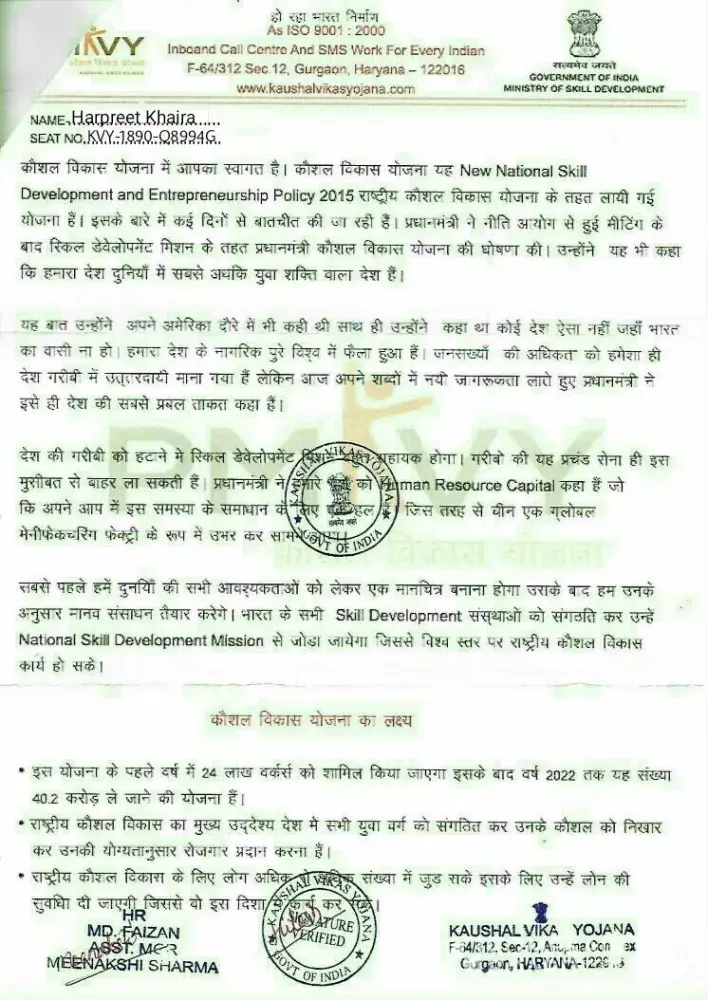 हो रहा भारत निर्माण
As ISO 9001 : 2000
Inboand Call Centre And SMS Work For Every Indian
F-64/312 Sec.12, Gurgaon, Haryana – 122016
www.kaushalvikasyojana.com
सत्यमेव जयते
GOVERNMENT OF INDIA
MINISTRY OF SKILL DEVELOPMENT
NAME. Harpreet Khaira.....
SEAT NO. KVY-1890-Q8994G.
कौशल विकास योजना में आपका स्वागत है। कौशल विकास योजना यह New National Skill
Development and Entrepreneurship Policy 2015 राष्ट्रीय कौशल विकास योजना के तहत लायी गई
योजना हैं। इसके बारे में कई दिनों से बातचीत की जा रही हैं। प्रधानमंत्री ने नीति आयोग से हुई मीटिंग के
बाद स्किल डेवेलोपमेंट मिशन के तहत प्रधानमंत्री कौशल विकास योजना की घोषणा की। उन्होंने यह भी कहा
कि हमारा देश दुनियाँ में सबसे अधकि युवा शक्ति वाला देश हैं।
यह बात उन्होंने अपने अमेरिका दौरे में भी कही थी साथ ही उन्होंने कहा था कोई देश ऐसा नहीं जहाँ भारत
का वासी ना हो। हमारा देश के नागरिक पुरे विश्व में फैला हुआ हैं। जनसख्याँ की अधिकता को हमेशा ही
देश गरीबी में उत्तरदायी माना गया हैं लेकिन आज अपने शब्दों में नयी जागरूकता लाते हुए प्रधानमंत्री ने
इसे ही देश की सबसे प्रबल ताकत कहा हैं।
देश की गरीबी को हटाने मे स्किल डेवेलोपमेंट सहायक होगा। गरीबो की यह प्रचंड सेना ही इस
मुसीबत से बाहर ला सकती हैं। प्रधानमंत्री ने को Human Resource Capital कहा हैं जो
कि अपने आप में इस समस्या के समाधान के लिए एक हल जिस तरह से चीन एक ग्लोबल
मेनीफेकचरिंग फेक्ट्री के रूप में उभर कर सामने
KAUSHAL VIKAS YOJANA
GOVT OF INDIA
सबसे पहले हमें दुनयिाँ की सभी आवश्यकताओं को लेकर एक मानचित्र बनाना होगा उसके बाद हम उनके
अनुसार मानव संसाधन तैयार करेगे। भारत के सभी Skill Development संस्थाओं को संगठति कर उन्हें
National Skill Development Mission से जोडा जायेगा जिससे विश्व स्तर पर राष्ट्रीय कौशल विकास
कार्य हो सके।
कौशल विकास योजना का लक्ष्य
• इस योजना के पहले वर्ष में 24 लाख वर्कर्स को शामिल किया जाएगा इसके बाद वर्ष 2022 तक यह संख्या
40.2 करोड़ ले जाने की योजना हैं।
• राष्ट्रीय कौशल विकास का मुख्य उद्देश्य देश में सभी युवा वर्ग को संगठित कर उनके कौशल को निखार
कर उनकी योग्यतानुसार रोजगार प्रदान करना हैं।
• राष्ट्रीय कौशल विकास के लिए लोग अधिक से अधिक संख्या में जुड सके इसके लिए उन्हें लोन की
सुवधिा दी जाएगी जिससे वो इस दिशा में कार्य कर सके।
HR
MD. FAIZAN
ASST. MGR
MEENAKSHI SHARMA
KAUSHAL VIKAS YOJANA
SIGNATURE
VERIFIED
GOVT OF INDIA
KAUSHAL VIKA YOJANA
F-64/312, Sec-12,
Gurgaon, HARYANA